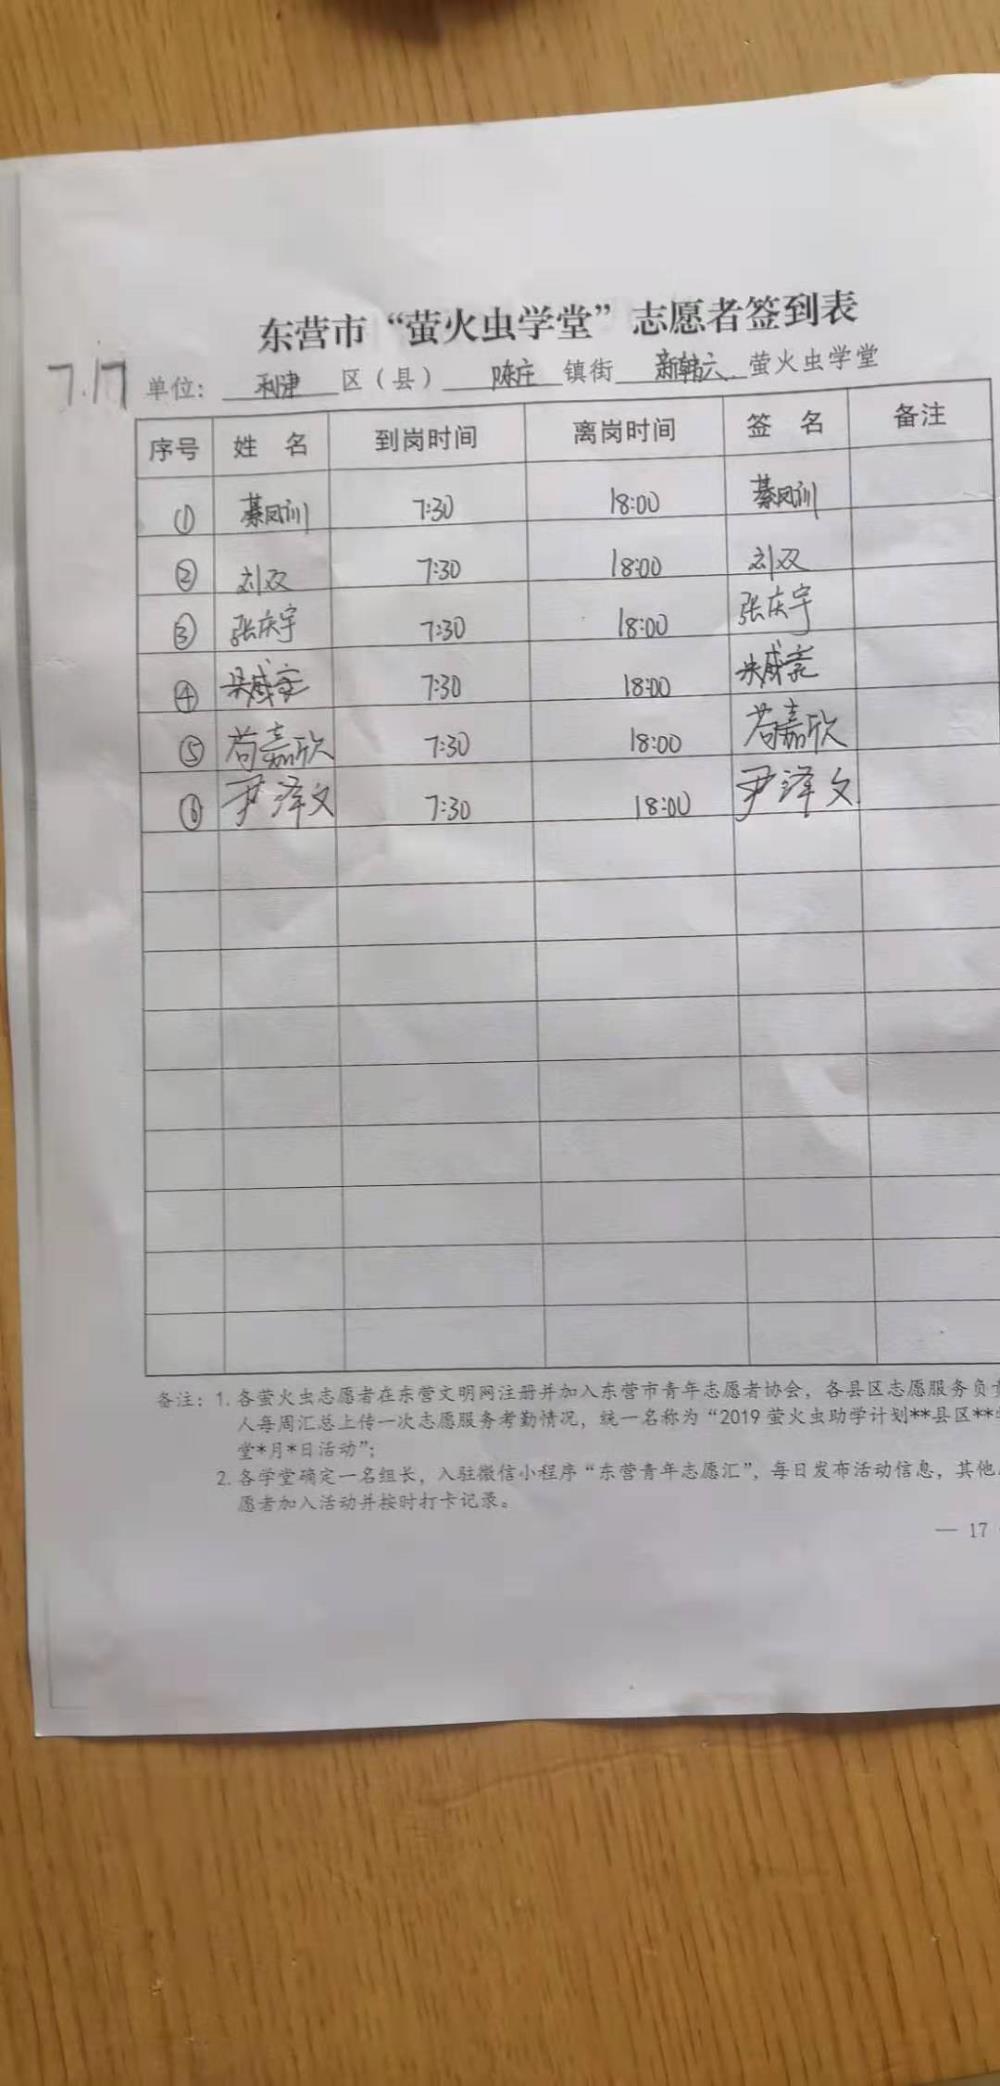 东营市“萤火虫学堂”志愿者签到表
7.17
单位： 利津 区（县） 陈庄 镇街 新韩六 萤火虫学堂
序号 姓 名 到岗时间 离岗时间 签 名 备注
① 綦凤训 7:30 18:00 綦凤训
② 刘双 7:30 18:00 刘双
③ 张庆宇 7:30 18:00 张庆宇
④ 7:30 18:00
⑤ 苟嘉欣 7:30 18:00 苟嘉欣
⑥ 尹泽文 7:30 18:00 尹泽文
备注：1. 各萤火虫志愿者在东营文明网注册并加入东营市青年志愿者协会，各县区志愿服务负责
人每周汇总上传一次志愿服务考勤情况，统一名称为“2019 萤火虫助学计划**县区**
堂*月*日活动”；
2. 各学堂确定一名组长，入驻微信小程序“东营青年志愿汇”，每日发布活动信息，其他
愿者加入活动并按时打卡记录。
— 17